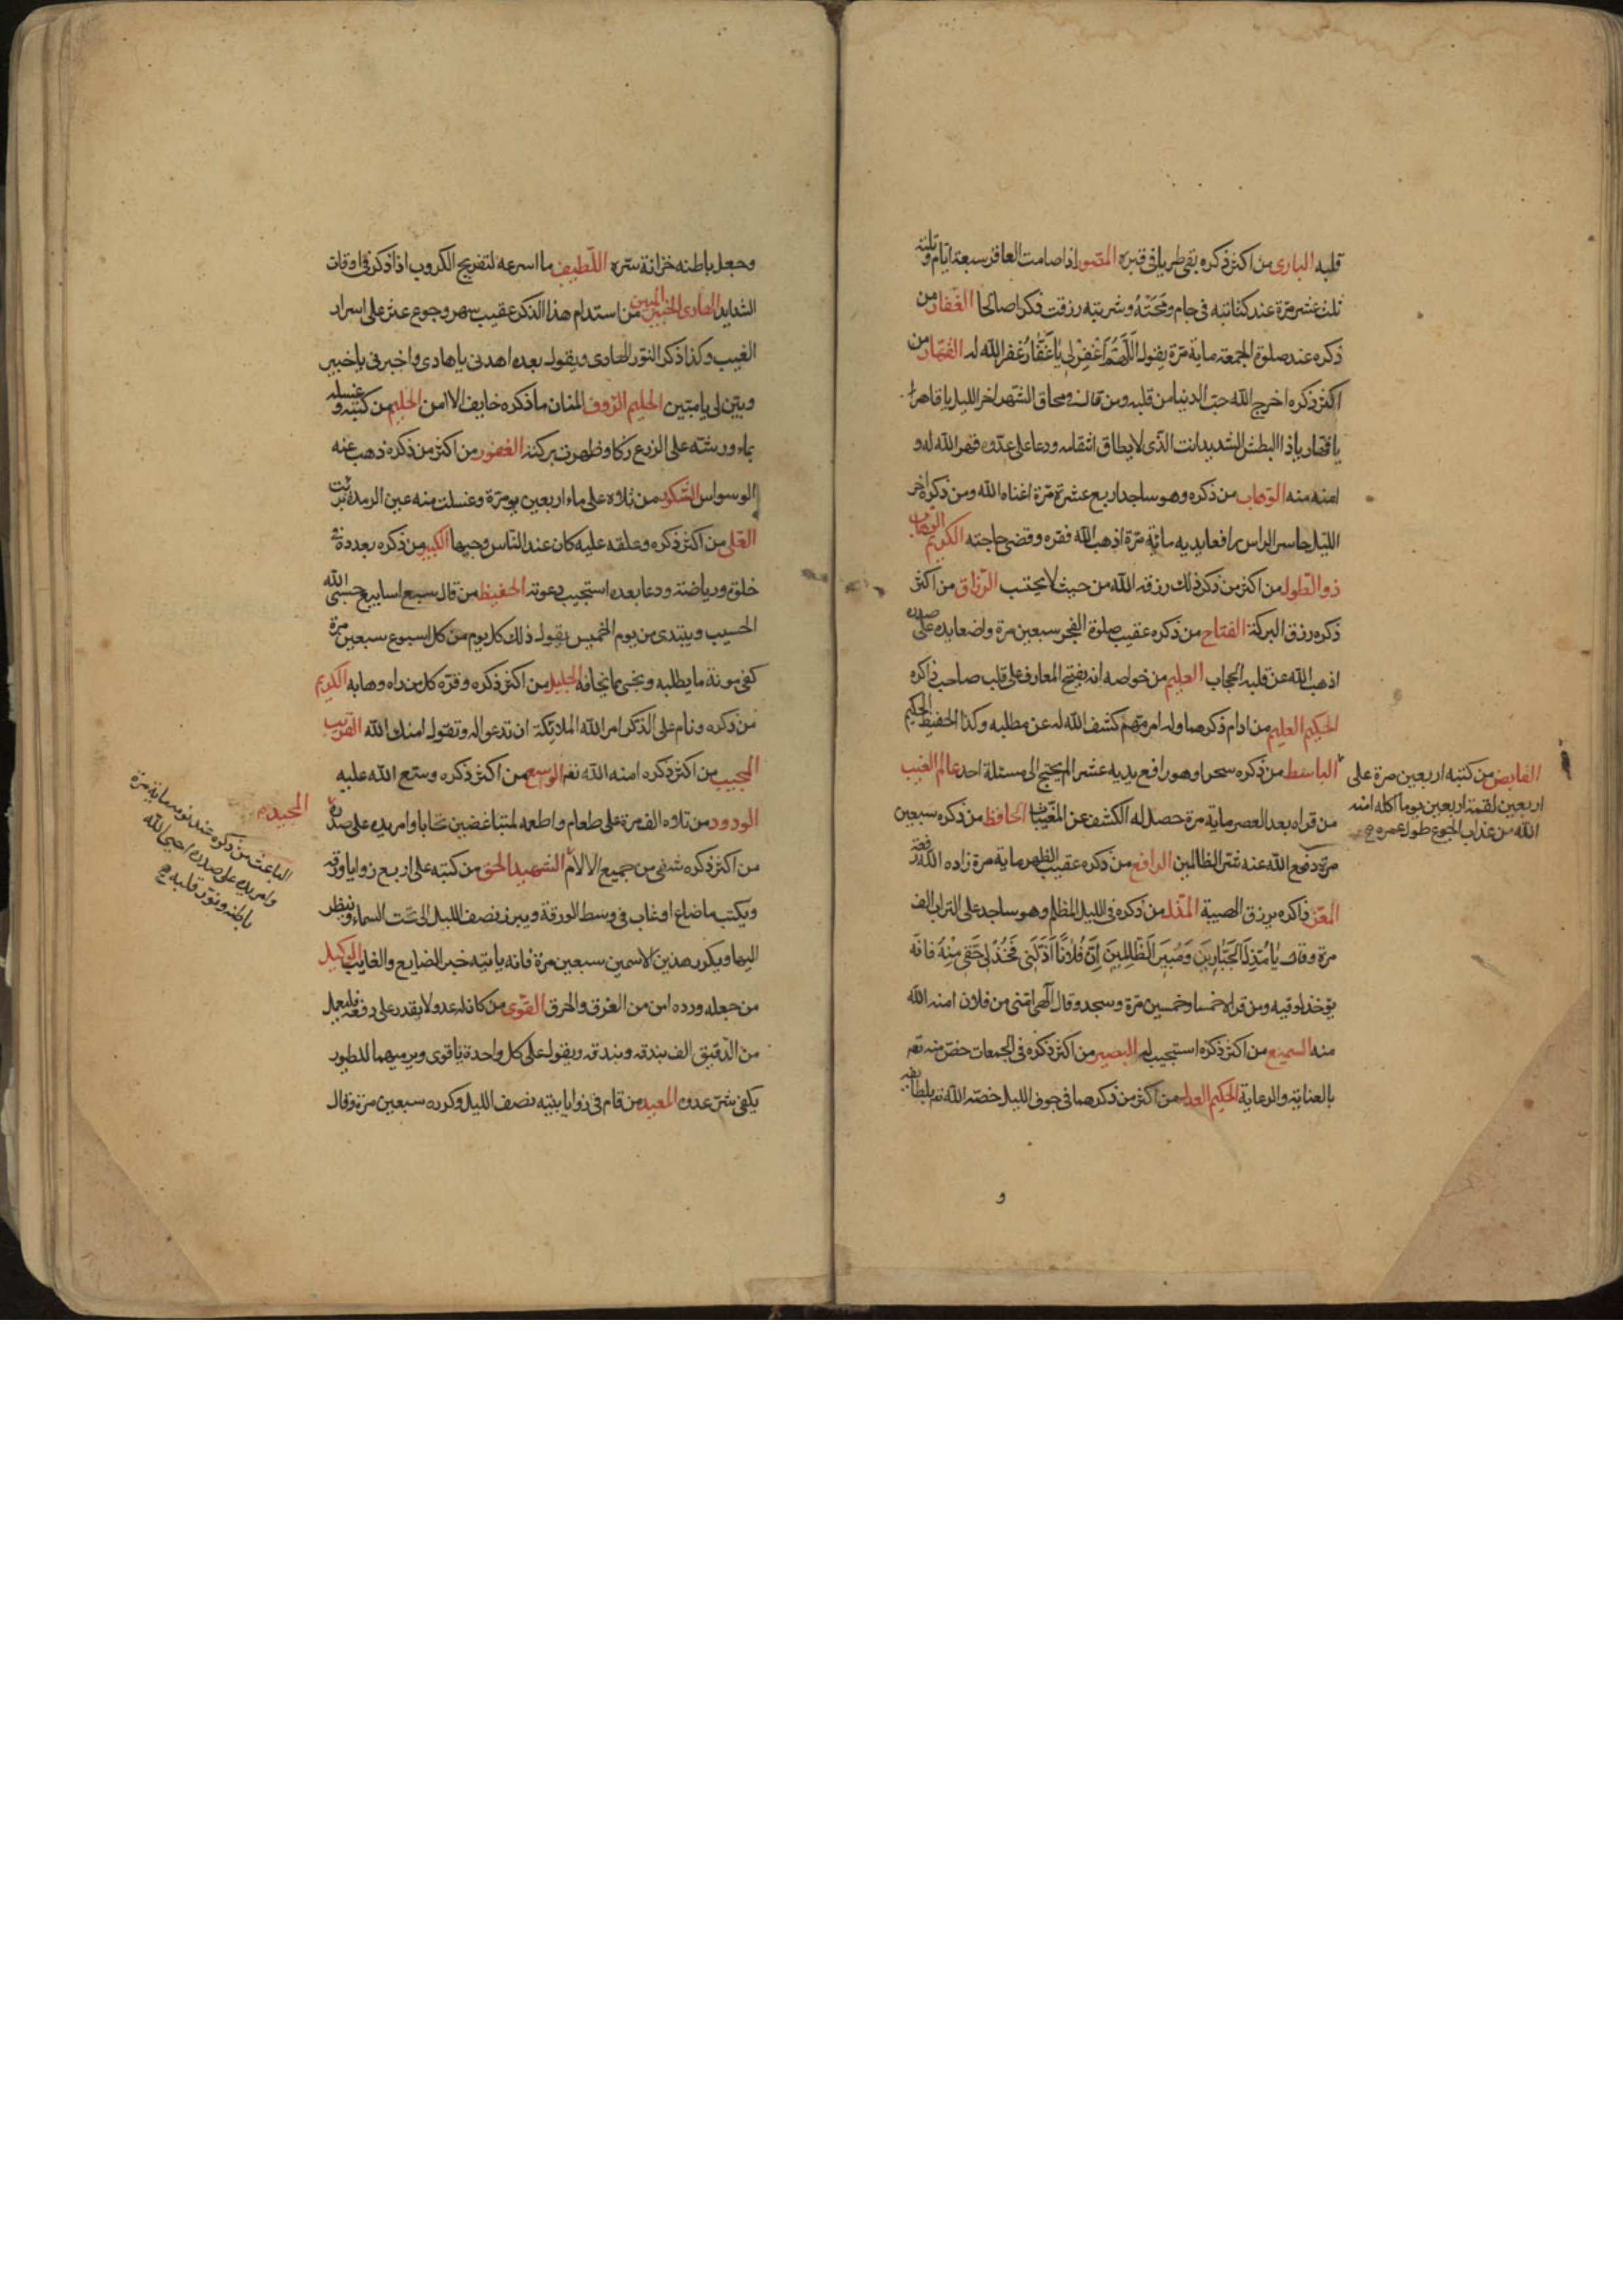 قلبه البارى من اكثر ذكره بقى طريا فى قبره المصور اذا صامت العاقر سبعة ايام وتلته
ثلث عشر مرة عند كتابته فى جام ومحته وشربته رزقت ذكرا صالحا الغفار من
ذكره عند صلوة الجمعة ماية مرة يقول اَللّٰهُمَّ اغْفِرْ لِى يَا غَفَّارُ غفر الله له القهار من
اكثر ذكره اخرج الله حب الدنيا من قلبه ومن قال فى محاق الشهر اخر الليل يا قاهر
يا قهار يا ذا البطش الشديد انت الذى لا يطاق انتقامه ودعا على عدوه قهر الله له و
امنه منه الوهاب من ذكره وهو ساجد اربع عشرة مرة اغناه الله ومن ذكره اخر
الليل حاسر الراس رافعا يديه مائة مرة اذهب الله فقره وقضى حاجته الكريم الوهاب
ذو الطول من اكثر من ذكر ذلك رزقه الله من حيث لا يحتسب الرزاق من اكثر
ذكره رزق البركة الفتاح من ذكره عقيب صلوة الفجر سبعين مرة واضعا يده على صدره
اذهب الله عن قلبه الحجاب العليم من خواصه انه يفتح المعارف على قلب صاحب ذاكره
الحكيم العليم من ادام ذكرهما وله امر مهم كشف الله له عن مطلبه وكذا الحفيظ الحكيم
الباسط من ذكره سحرا وهو رافع يديه عشرا لم يحتج الى مسئلة احد عالم الغيب
من قراه بعد العصر ماية مرة حصل له الكشف عن المغيبات الحافظ من ذكره سبعين
مرة دفع الله عنه شر الظالمين الرافع من ذكره عقيب الظهر ماية مرة زاده الله رفعة
المعز ذاكره يرزق الهيبة المذل من ذكره فى الليل المظلم وهو ساجد على التراب الف
مرة وقال يَا مُذِلَّ الْجَبَّارِينَ وَمُبِيرَ الظَّالِمِينَ اِنَّ فُلَانًا اَذَلَّنِى فَخُذْ لِى حَقِّى مِنْهُ فانه
يؤخذ لوقيه ومن قراه خمسا وخمسين مرة وسجد وقال الهى امنى من فلان امنه الله
منه السميع من اكثر ذكره استجيب له البصير من اكثر ذكره فى الجمعات خص منه تعه
بالعناية والرعاية الحكيم العدل من اكثر من ذكرهما فى جوف الليل خصه الله تعه بلطايفه
و
القابض من كتبه اربعين مرة على
اربعين لقمة اربعين يوما اكله امنه
الله من عذاب الجوع طول عمره
وجعل باطنه خزانة سره اللطيف ما اسرعه لتفريج الكروب اذا ذكر فى اوقات
الشدايد الهادى الخبير المبين من استدام هذا الذكر عقيب سهر وجوع عثر على اسرار
الغيب وكذا ذكر النور الهادى ويقول بعده اهدنى يا هادى واخبرنى يا خبير
وبين لى يا مبين الحليم الرؤف المنان ما ذكره خايف الا امن الحليم من كتبه وغسله
بماء ورشه على الزرع زكا وظهرت بركته الغفور من اكثر من ذكره ذهب عنه
الوسواس الشكور من تلاوه على ماء اربعين يوم مرة وغسلت منه عين الرمد برئت
العلى من اكثر ذكره وعلقه عليه كان عند الناس وجيها الكبير من ذكره بعدده فى
خلوة ورياضة ودعا بعده استجيب دعوته الحفيظ من قال سبع اسابيع حسبى الله
الحسيب ويبتدى من يوم الخميس يقول ذلك كل يوم من كل اسبوع سبعين مرة
كفى مونة ما يطلبه ونجى مما يخافه الجليل من اكثر ذكره وقره كل من راه وهابه الكريم
من ذكره ونام على الذكر امر الله الملائكة ان تدعو له وتقول امنك الله القريب
المجيب من اكثر ذكره امنه الله تعه الوسع من اكثر ذكره وسع الله عليه
الودود من تلوه الف مرة على طعام واطعه لمتباغضين تحابا وامر يده على صدره
من اكثر ذكره شفى من جميع الالام الشهيد الحق من كتبه على اربع زوايا ورقة
ويكتب ما ضاع او غاب فى وسط الورقة ويبرز نصف الليل الى تحت السماء وينظر
اليها ويكرر هذين الاسمين سبعين مرة فانه ياتيه خبر الضايع والغايب الوكيل
من جعله ورده امن من الغرق والحرق القوى من كان له عدو لا يقدر على دفعه فليعمل
من الدقيق الف بندقة وبندقه ويقول على كل واحدة يا قوى ويرميها للطيور
يكفى شر عدوه المعيد من قام فى زوايا بيته نصف الليل وكرره سبعين مرة وقال
المجيد
الباعث من ذكره عند نومه ماية مرة
وامر يده على صدره احيى الله
باطنه ونور قلبه